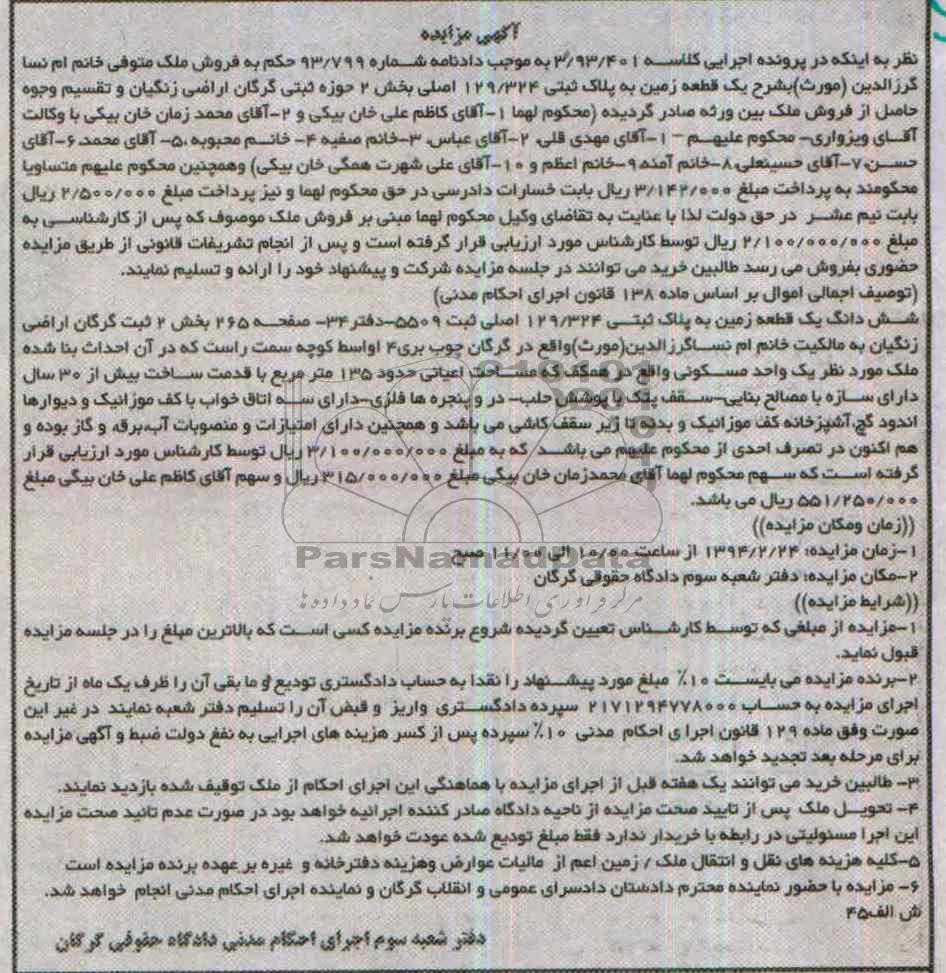 آگهی مزایده
نظر به اینکه در پرونده اجرایی کلاسه ۳/۹۳/۴۰۱ به موجب دادنامه شماره ۹۳/۷۹۹ حکم به فروش ملک متوفی خانم ام نسا
گرزالدین (مورث)بشرح یک قطعه زمین به پلاک ثبتی ۱۲۹/۳۲۴ اصلی بخش ۲ حوزه ثبتی گرگان اراضی زنگیان و تقسیم وجوه
حاصل از فروش ملک بین ورثه صادر گردیده (محکوم لهما ۱-آقای کاظم علی خان بیکی و ۲-آقای محمد زمان خان بیکی با وکالت
آقای ویزواری- محکوم علیهم – ۱-آقای مهدی قلی، ۲-آقای عباس، ۳-خانم صفیه ۴- خانم محبوبه ،۵- آقای محمد، ۶-آقای
حسن،۷-آقای حسینعلی،۸-خانم آمنه،۹-خانم اعظم و ۱۰-آقای علی شهرت همگی خان بیکی) وهمچنین محکوم علیهم متساویا
محکومند به پرداخت مبلغ ۳/۱۴۲/۰۰۰ ریال بابت خسارات دادرسی در حق محکوم لهما و نیز پرداخت مبلغ ۲/۵۰۰/۰۰۰ ریال
بابت نیم عشر در حق دولت لذا با عنایت به تقاضای وکیل محکوم لهما مبنی بر فروش ملک موصوف که پس از کارشناسی به
مبلغ ۲/۱۰۰/۰۰۰/۰۰۰ ریال توسط کارشناس مورد ارزیابی قرار گرفته است و پس از انجام تشریفات قانونی از طریق مزایده
حضوری بفروش می رسد طالبین خرید می توانند در جلسه مزایده شرکت و پیشنهاد خود را ارائه و تسلیم نمایند.
(توصیف اجمالی اموال بر اساس ماده ۱۳۸ قانون اجرای احکام مدنی)
شش دانگ یک قطعه زمین به پلاک ثبتی ۱۲۹/۳۲۴ اصلی ثبت ۵۵۰۹-دفتر۳۴- صفحه ۲۶۵ بخش ۲ ثبت گرگان اراضی
زنگیان به مالکیت خانم ام نساگرزالدین(مورث)واقع در گرگان چوب بری۴ اواسط کوچه سمت راست که در آن احداث بنا شده
ملک مورد نظر یک واحد مسکونی واقع در همکف که مساحت اعیانی حدود ۱۳۵ متر مربع با قدمت ساخت بیش از ۳۰ سال
دارای سازه با مصالح بنایی-سقف پتک با پوشش حلب- در و پنجره ها فلزی-دارای سه اتاق خواب با کف موزائیک و دیوارها
اندود گچ،آشپزخانه کف موزائیک و بدنه تا زیر سقف کاشی می باشد و همچنین دارای امتیازات و منصوبات آب،برق، و گاز بوده و
هم اکنون در تصرف احدی از محکوم علیهم می باشد که به مبلغ ۳/۱۰۰/۰۰۰/۰۰۰ ریال توسط کارشناس مورد ارزیابی قرار
گرفته است که سهم محکوم لهما آقای محمدزمان خان بیگی مبلغ ۳۱۵/۰۰۰/۰۰۰ ریال و سهم آقای کاظم علی خان بیگی مبلغ
۵۵۱/۲۵۰/۰۰۰ ریال می باشد.
((زمان ومکان مزایده))
۱-زمان مزایده: ۱۳۹۴/۲/۲۴ از ساعت ۱۰/۰۰ الی ۱۱/۰۰ صبح
ParsNamadData
۲-مکان مزایده: دفتر شعبه سوم دادگاه حقوقی گرگان
مرکز فرآوری اطلاعات پارس نماد داده ها
((شرایط مزایده))
۱-مزایده از مبلغی که توسط کارشناس تعیین گردیده شروع برنده مزایده کسی است که بالاترین مبلغ را در جلسه مزایده
قبول نماید.
۲-برنده مزایده می بایست ۱۰٪ مبلغ مورد پیشنهاد را نقدا به حساب دادگستری تودیع و ما بقی آن را ظرف یک ماه از تاریخ
اجرای مزایده به حساب ۲۱۷۱۲۹۴۷۷۸۰۰۰ سپرده دادگستری واریز و قبض آن را تسلیم دفتر شعبه نمایند در غیر این
صورت وفق ماده ۱۲۹ قانون اجرا ی احکام مدنی ۱۰٪ سپرده پس از کسر هزینه های اجرایی به نفع دولت ضبط و آگهی مزایده
برای مرحله بعد تجدید خواهد شد.
۳- طالبین خرید می توانند یک هفته قبل از اجرای مزایده با هماهنگی این اجرای احکام از ملک توقیف شده بازدید نمایند.
۴- تحویل ملک پس از تایید صحت مزایده از ناحیه دادگاه صادر کننده اجرائیه خواهد بود در صورت عدم تائید صحت مزایده
این اجرا مسئولیتی در رابطه با خریدار ندارد فقط مبلغ تودیع شده عودت خواهد شد.
۵-کلیه هزینه های نقل و انتقال ملک / زمین اعم از مالیات عوارض وهزینه دفترخانه و غیره بر عهده برنده مزایده است
۶- مزایده با حضور نماینده محترم دادستان دادسرای عمومی و انقلاب گرگان و نماینده اجرای احکام مدنی انجام خواهد شد.
ش الف۴۵
دفتر شعبه سوم اجرای احکام مدنی دادگاه حقوقی گرگان